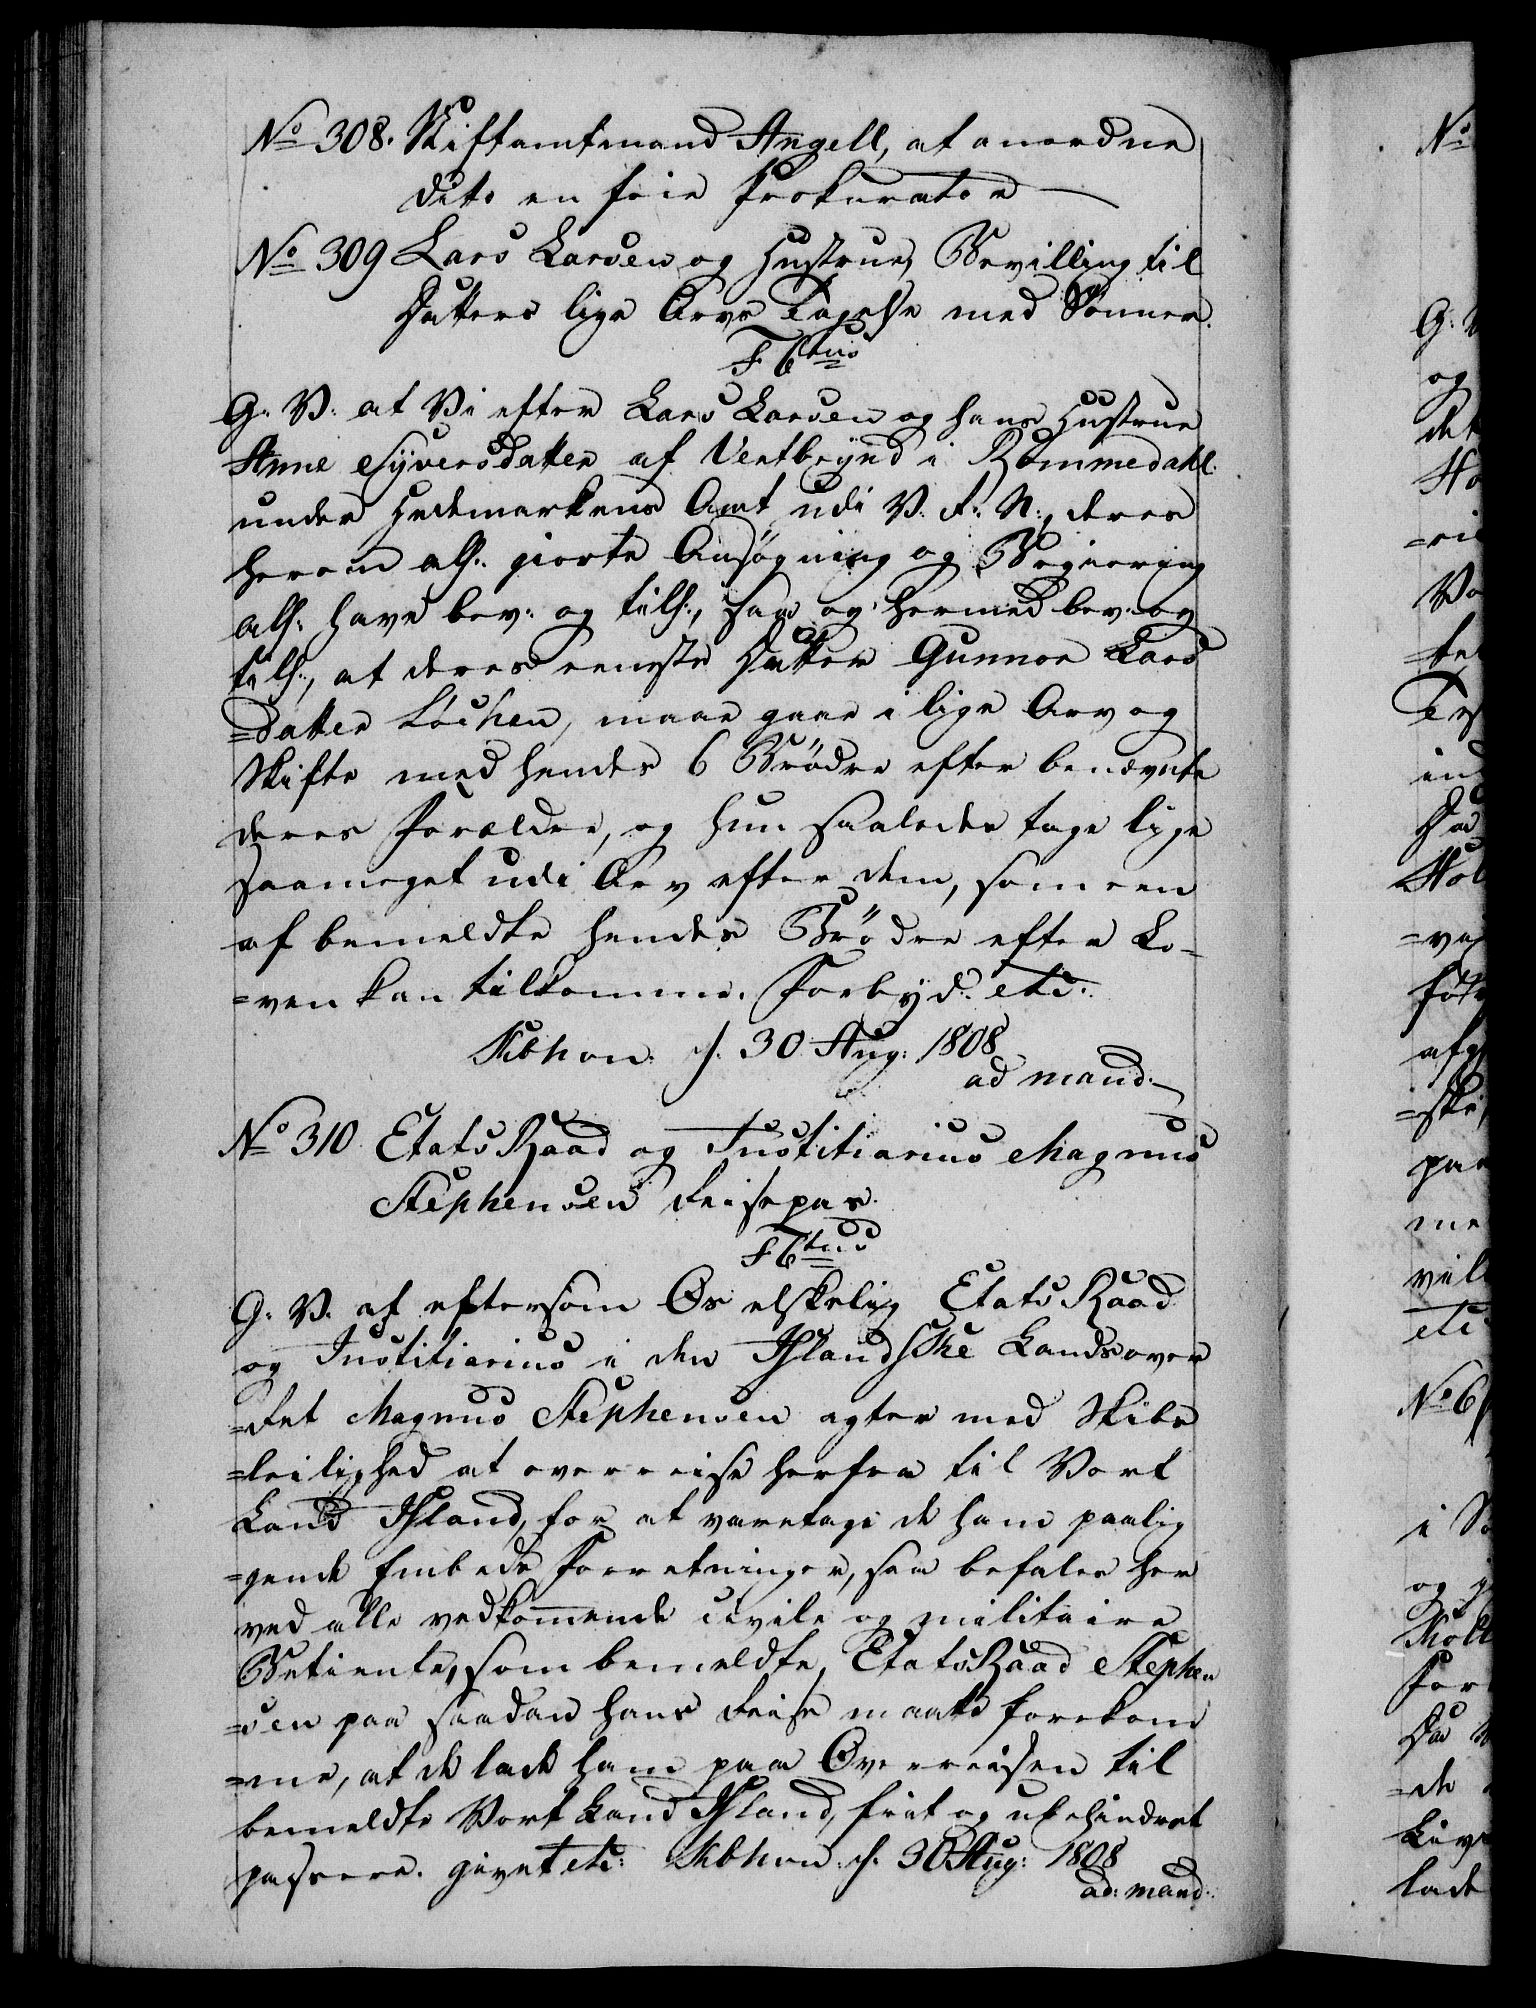 No 308. Stiftamtmand Angell, at anordne
dito en frie Prokurator
No 309 Lars Larsen og Hustrue, Bevilling til
Datters lige Arvs Tagelse med Sønner.
F 6tus
G. V. at Vi efter Lars Larsen og hans Hustrue
Anne Syversdatter af Vestbrynd i Rommedahl
under Hedemarkens Amt udi V. R. N., deres
herom alh. giorte Ansøgning og Begiering
alh. have bev. og tilh., saa og hermed bev. og
tilh., at deres eeneste Datter Gunnor Lars
=datter Løchen, maae gaae i lige Arv og
Skifte med hendes 6 Brødre efter benævnte
deres Forældre, og hun saaledes tage lige
saameget udi Arv efter dem, som een
af bemeldte hendes Brødre efter Lo-
=ven kan tilkomme. Forbyd. etc.
Kbhvn. d. 30 Aug: 1808
ad mand.
No 310 EtatsRaad og Justitiarius Magnus
Stephensen Reisepas.
F 6tus
G. V. at eftersom Os elskelig Etats Raad
og Justitiarius i den Islandske Landsover
=Ret Magnus Stephensen agter med Skibs
=leilighed at overreise herfra til Vort
Land Island, for at varetage de ham paalig
=gende Embeds Forretninger, saa befales her
ved alle vedkommende civile og militaire
Betiente, som bemeldte EtatsRaad Stephen
=sen paa saadan hans Reise maatte forekom
=me, at de lade ham paa Overreisen til
bemeldte Vort Land Island, friet og ubehindret
passere. givet etc: Kbhvn. d. 30 Aug: 1808
ad: mand:
No
G: V
og
det
Ho
Vo
ind
Hol
afg
=ske
me
vil
etc
No 6
i
og
Møll
For
=de
Liv
lade